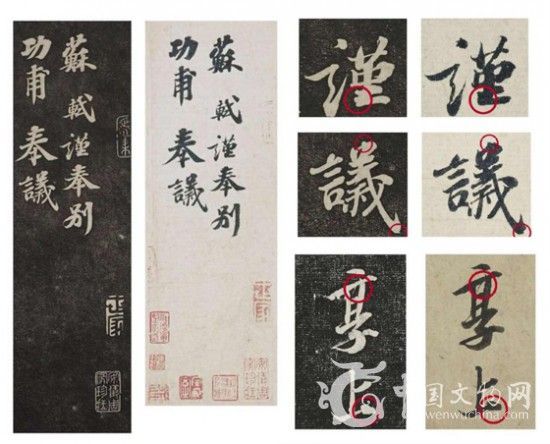 蘇 軾謹奉別
功甫 奉議
蘇 軾謹奉別
功甫 奉議
謹
謹
議
議
享上
享上
中国文物网
wenwuchina.com